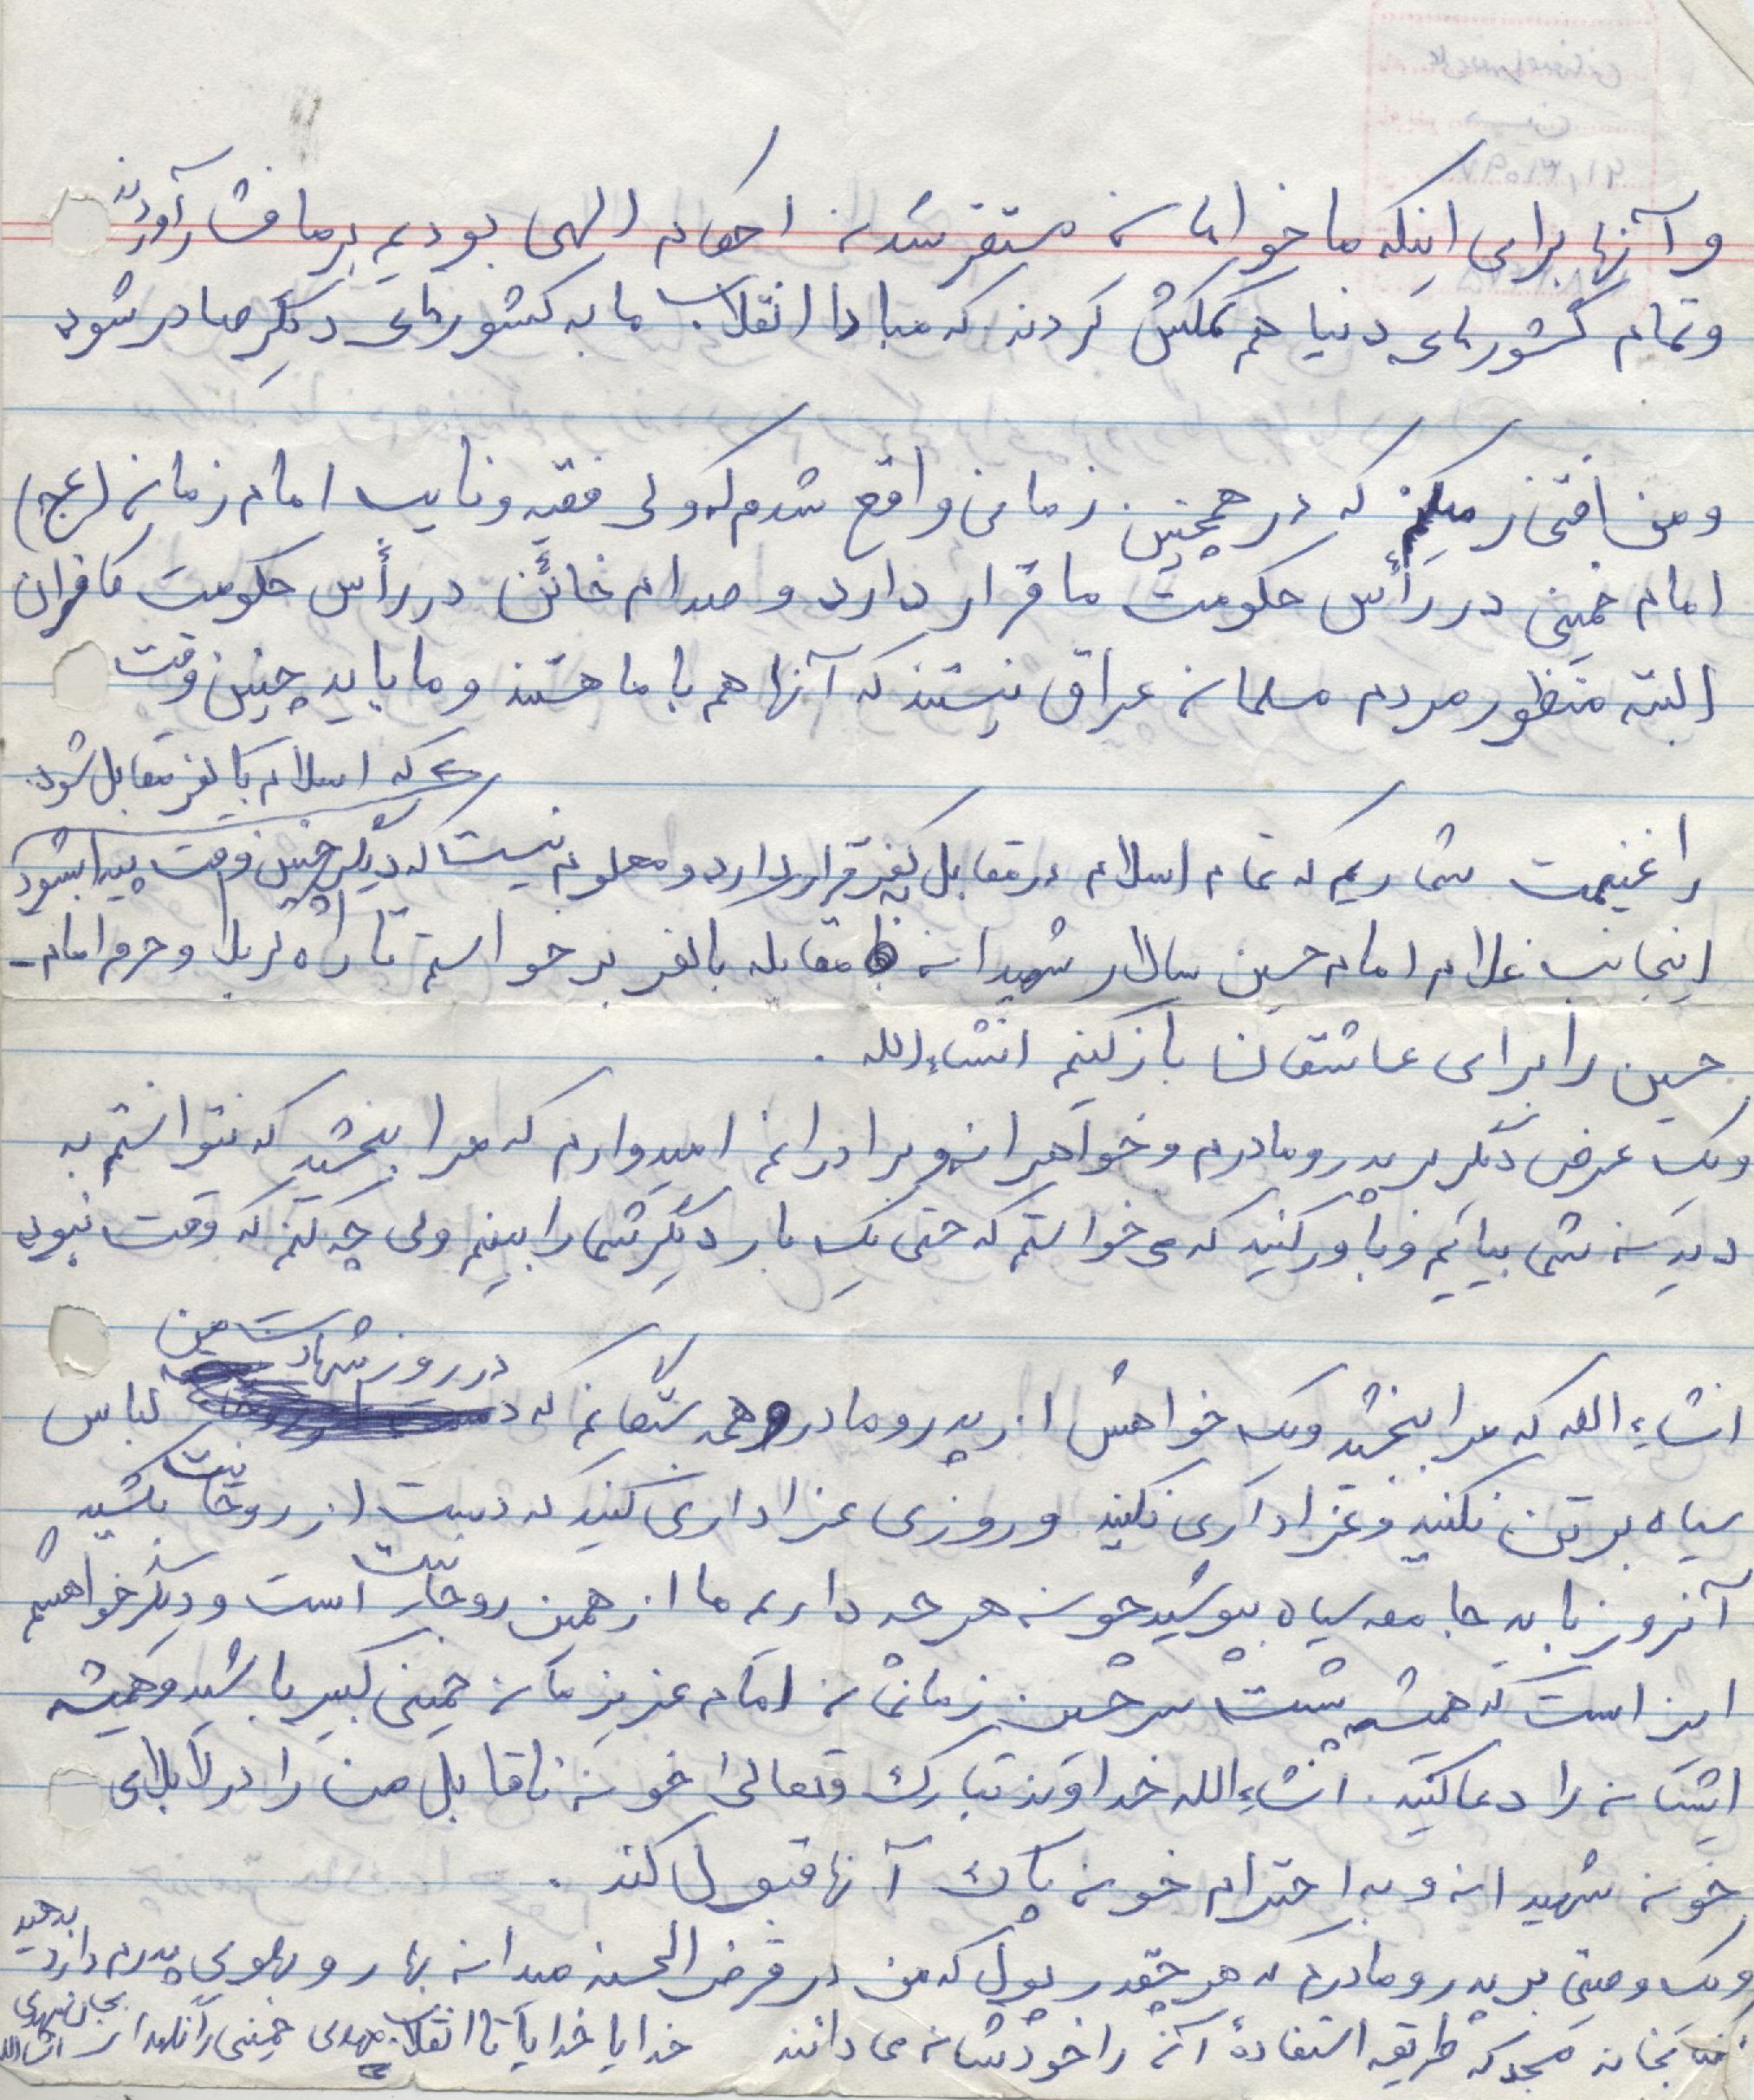 و آنها برای اینکه ما خواهان مستقر شدن احکام الهی بودیم بر ما فشار آوردند
و تمام کشورهای دنیا هم کمکش کردند که مبادا انقلاب ما به کشورهای دیگر صادر شود
و من افتخار میکنم که در همچنین زمانی واقع شدم که ولی فقیه و نایب امام زمان (عج)
امام خمینی در رأس حکومت ما قرار دارد و صدام خائن در رأس حکومت کافران
البته منظور مردم مسلمان عراق نیستند که آنها هم با ما هستند و ما باید چنین وقت
که اسلام با کفر مقابل شود.
را غنیمت شماریم که تمام اسلام در مقابل کفر قرار دارد و معلوم نیست که دیگر چنین وقت پیدا بشود
اینجانب غلام امام حسین سالار شهیدان مقابله با کفر برخواستم تا راه کربلا و حرم امام -
حسین را برای عاشقان باز کنیم انشاءالله .
و یک عرض دیگر بر پدر و مادرم و خواهران و برادرانم امیدوارم که مرا ببخشید که نتوانستم به
دیدن شما بیایم و باور کنید که می خواستم که حتی یک بار دیگر شما را ببینم ولی چه کنم که وقت نبود
در روز شهادت من
انشاءالله که مرا ببخشید و یک خواهش از پدر و مادر و همه بستگانم که لباس
سیاه بر تن نکنید و عزاداری نکنید و روزی عزاداری کنید که دست از روحانیت بکشید
آنروز باید جامعه سیاه بپوشید چون هرچه داریم ما از همین روحانیت است و دیگر خواهشم
این است که همیشه پشت سر حسین زمانتان امام عزیزمان خمینی کبیر باشید و همیشه
ایشان را دعا کنید . انشاءالله خداوند تبارک و تعالی خون ناقابل من را در لابلای
خون شهیدان و به احترام خون پاک آنها قبول کند .
و یک وصیتی بر پدر و مادرم که هر چقدر پول که من در قرض الحسنه میدان بهار و پهلوی پدرم دارد بدهید
کتابخانه مسجد که طریقه استفادهٔ آن را خودشان می دانند خدایا خدایا تا انقلاب مهدی خمینی را نگهدار بجان مهدی انشاءالله